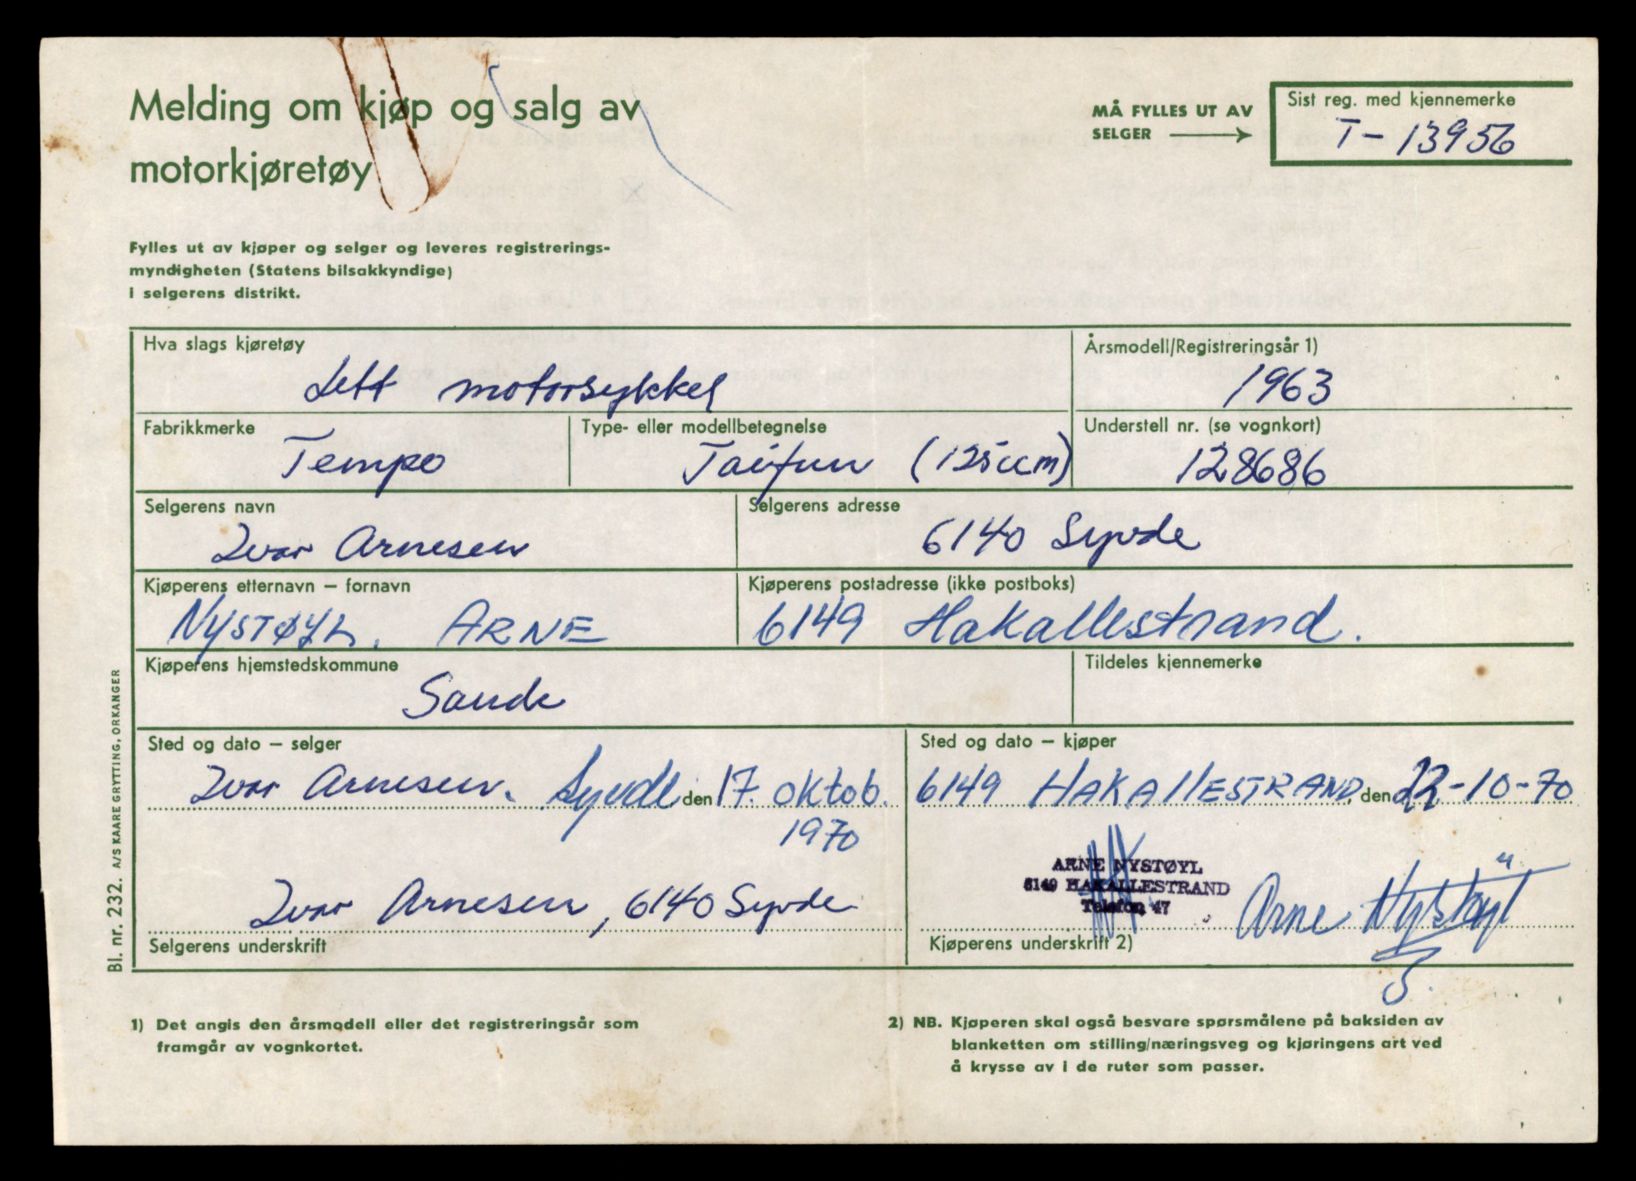 Melding om kjøp og salg av
motorkjøretøy
MÅ FYLLES UT AV
SELGER
Sist reg. med kjennemerke
T-13956
Fylles ut av kjøper og selger og leveres registrerings-
myndigheten (Statens bilsakkyndige)
i selgerens distrikt.
Hva slags kjøretøy
Lett motorsykkel
Årsmodell/Registreringsår 1)
1963
Fabrikkmerke
Tempo
Type- eller modellbetegnelse
Taifun (125ccm)
Understell nr. (se vognkort)
128686
Selgerens navn
Ivar Arnesen
Selgerens adresse
6140 Syvde
Kjøperens etternavn – fornavn
NYSTØYL. ARNE
Kjøperens postadresse (ikke postboks)
6149 Hakallestrand.
Kjøperens hjemstedskommune
Sande
Tildeles kjennemerke
Sted og dato – selger
Ivar Arnesen. Syvde den 17. oktob.
1970
Sted og dato – kjøper
6149 HAKALLESTRAND, den 22-10-70
ARNE NYSTØYL
6149 HAKALLESTRAND
Telefon 47
Ivar Arnesen, 6140 Syvde
Selgerens underskrift
Arne Nystøyl
Kjøperens underskrift 2)
Bl. nr. 232. A/S KAARE GRYTTING, ORKANGER
1) Det angis den årsmodell eller det registreringsår som
framgår av vognkortet.
2) NB. Kjøperen skal også besvare spørsmålene på baksiden av
blanketten om stilling/næringsveg og kjøringens art ved
å krysse av i de ruter som passer.